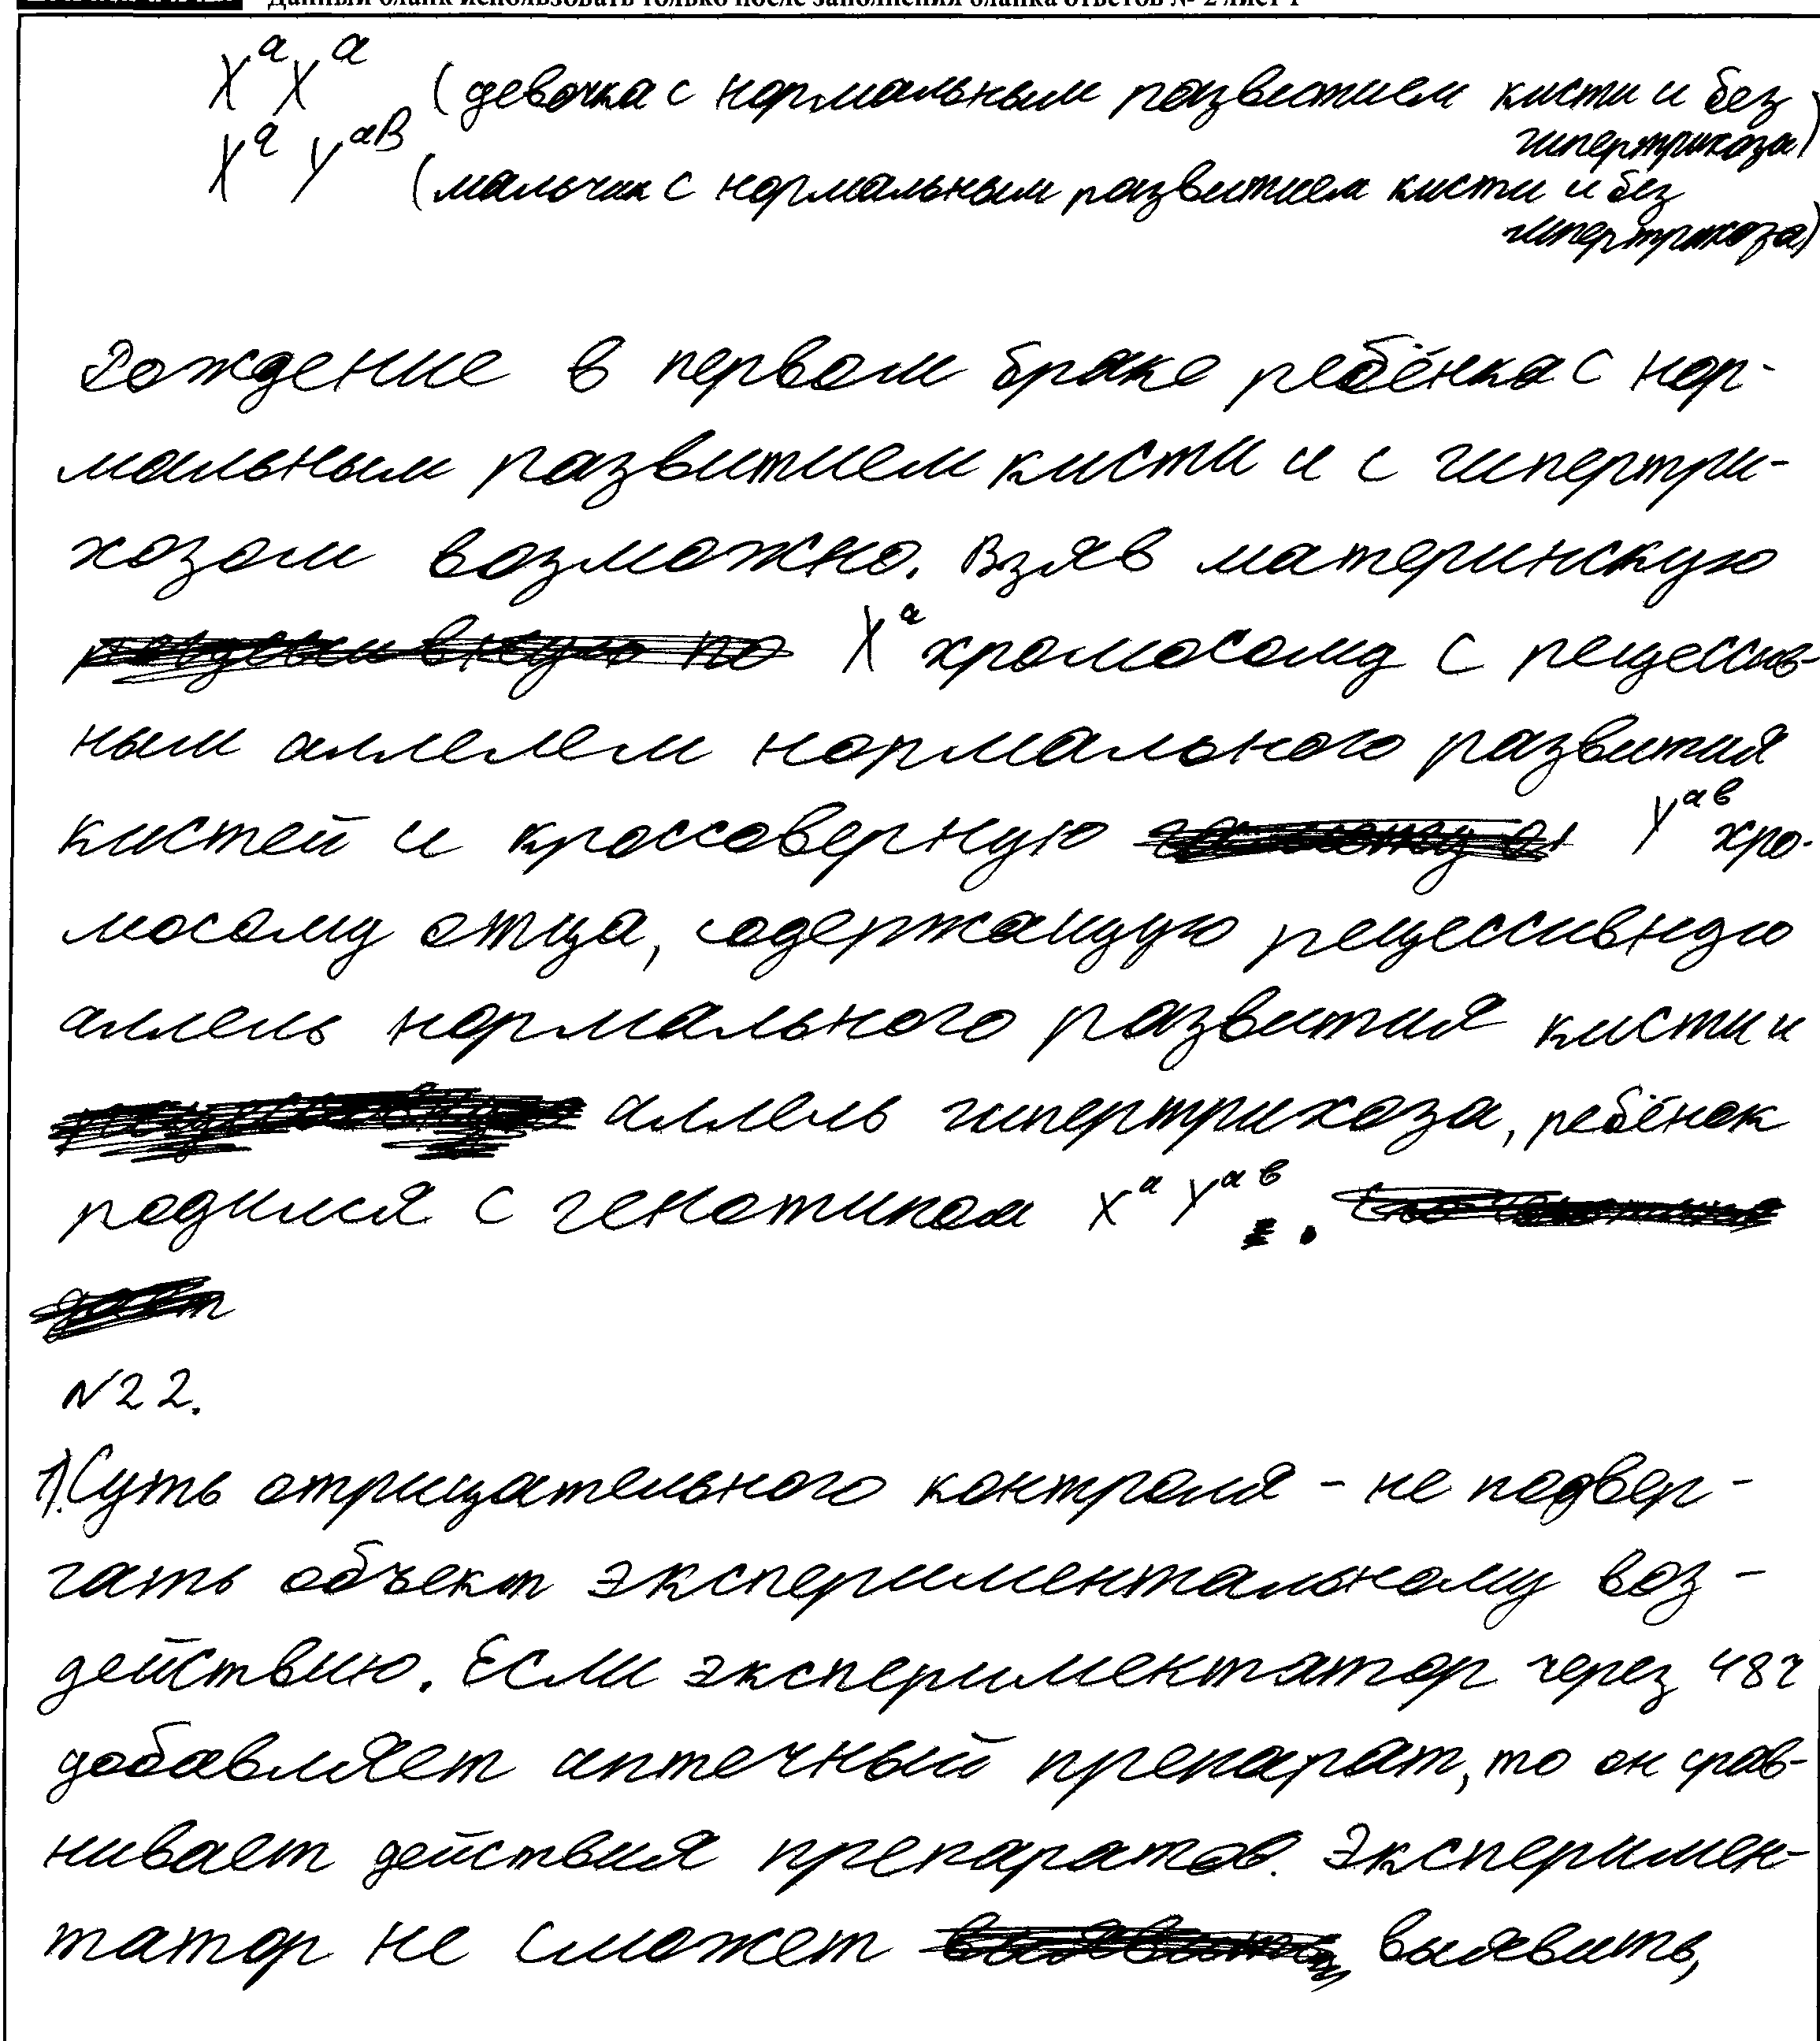 Данный бланк использовать только после заполнения бланка ответов № 2 лист 1
XᵃXᵃ (девочка с нормальным развитием кисти и без
гипертрихоза)
XᵃYᵃᴮ (мальчик с нормальным развитием кисти и без
гипертрихоза)
Рождение в первом браке ребёнка с нор-
мальным развитием кисти и с гипертри-
хозом возможно. Взяв материнскую
Xᵃ хромосому с рецессив-
ным аллелем нормального развития
кистей и кроссоверную Yᵃᵇ хро-
мосому отца, содержащую рецессивную
аллель нормального развития кисти и
аллель гипертрихоза, ребёнок
родился с генотипом XᵃYᵃᵇ.
№22.
1) Суть отрицательного контроля - не подвер-
гать объект экспериментальному воз-
действию. Если экспериментатор через 48ч
добавляет аптечный препарат, то он срав-
нивает действия препаратов. Эксперимен-
татор не сможет выявить,